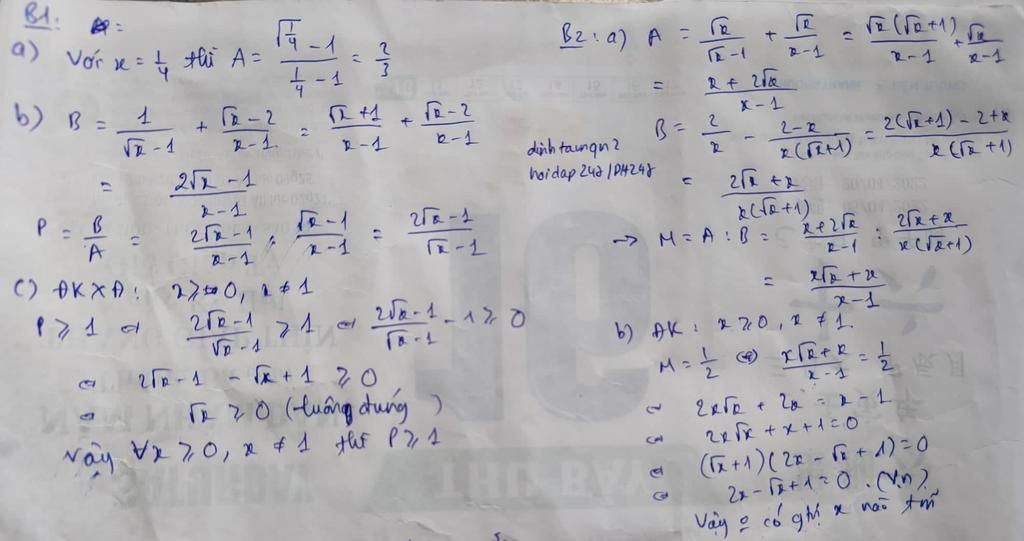 B1:
a) Với x = 1/4 thì A = (√(1/4) - 1)/(1/4 - 1) = 2/3
b) B = 1/(√x - 1) + (√x - 2)/(x - 1) = (√x + 1)/(x - 1) + (√x - 2)/(x - 1)
= (2√x - 1)/(x - 1)
P = B/A = (2√x - 1)/(x - 1) : (√x - 1)/(x - 1) = (2√x - 1)/(√x - 1)
c) ĐKXĐ: x ≥ 0, x ≠ 1
P ≥ 1 ⇔ (2√x - 1)/(√x - 1) ≥ 1 ⇔ (2√x - 1)/(√x - 1) - 1 ≥ 0
⇔ 2√x - 1 - √x + 1 ≥ 0
⇔ √x ≥ 0 (luông đúng)
Vậy ∀x ≥ 0, x ≠ 1 thì P ≥ 1
B2: a) A = √x/(√x - 1) + √x/(x - 1) = √x(√x + 1)/(x - 1) + √x/(x - 1)
= (x + 2√x)/(x - 1)
B = 2/x - (2 - x)/(x(√x + 1)) = (2(√x + 1) - 2 + x)/(x(√x + 1))
dinhtaungn2
hoidap247/DH247
= (2√x + x)/(x(√x + 1))
→ M = A : B = (x + 2√x)/(x - 1) : (2√x + x)/(x(√x + 1))
= (x√x + x)/(x - 1)
b) ĐK: x ≥ 0, x ≠ 1.
M = 1/2 ⇔ (x√x + x)/(x - 1) = 1/2
⇔ 2x√x + 2x = x - 1
⇔ 2x√x + x + 1 = 0
⇔ (√x + 1)(2x - √x + 1) = 0
⇔ 2x - √x + 1 = 0. (V.n)
Vậy o có gtri x nào tm
THỨ BẢY